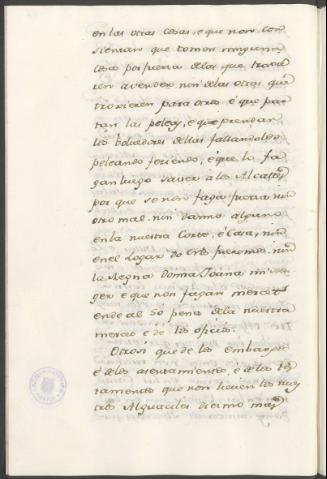 en las otras cosas, e que non con
sientan que tomen ninguna
cosa por fuerza delos que troxe
ren a vender nin delas otras que
troxieren para otros e que par
tan las peleas, e que prendan
los bolvedores dellas fallandolos
peleando feriendo, e que lo fa
gan luego saver a los Alcalles
por que se non faga fuerza nin
otro mal nin danno alguno
en la nuestra Corte, e Casa, nin
en el Logar do Nos fueremos nin
la Regna donna Joana mi mu
ger e que non fagan
ende al so pena dela nuestra
merced e de los oficios.
Otrosi que de los embargos
e delos asentamientos, e delas
que non lieven los nues
tros Alguaciles diezmo mas